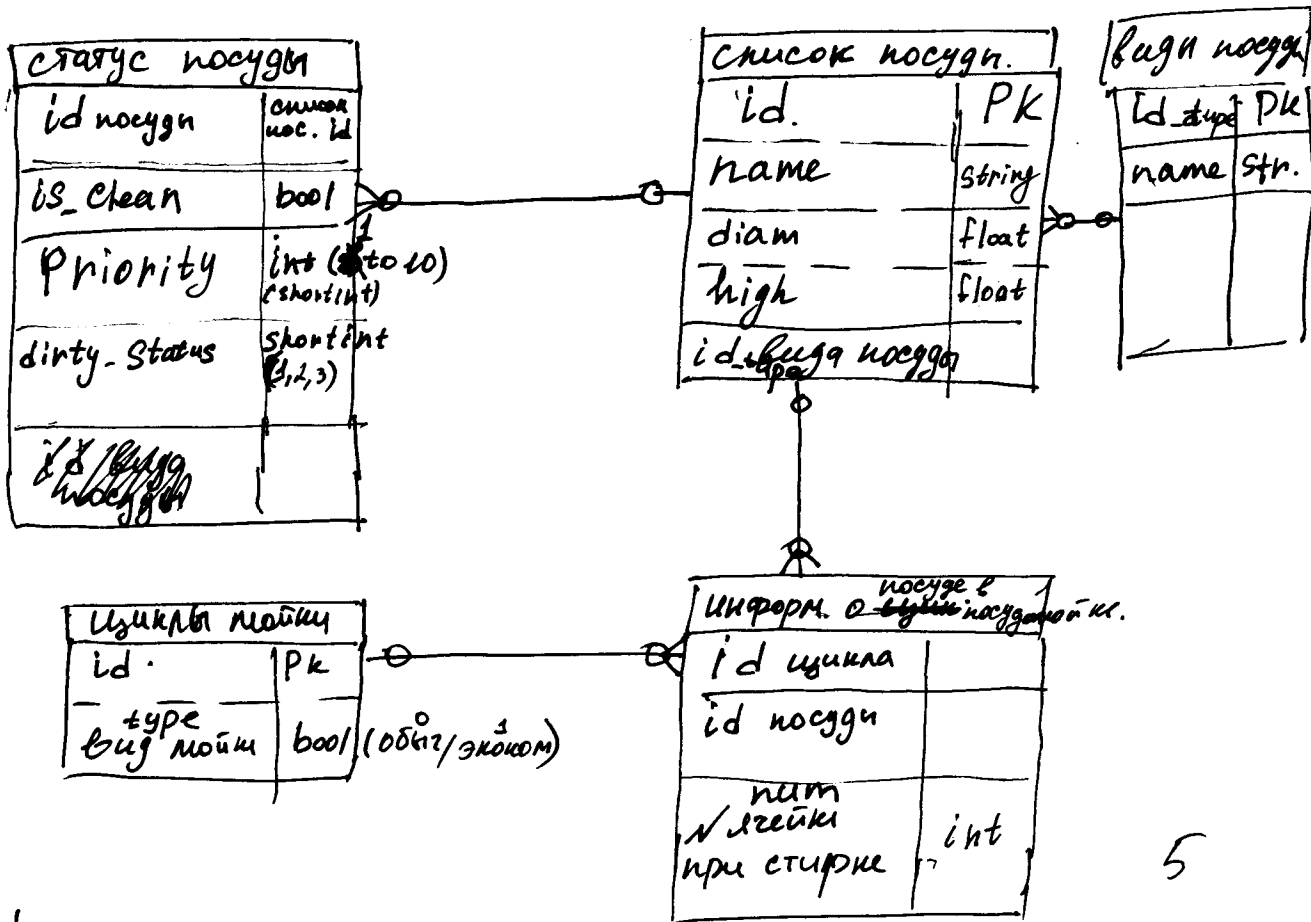 статус посуды
id посуды
список
пос. id
is_Clean
bool
Priority
1
int ( to 10)
(shortint)
dirty_Status
shortint
(1,2,3)
список посуды.
id.
PK
name
string
diam
float
high
float
id_вида посуды
type
виды посуды
id_type
PK
name
str.
циклы мойки
id.
PK
type
вид мойки
bool (обыч/эконом)
0
1
посуде в
информ. о посудомойке.
id цикла
id посуды
num
№ ячейки
при стирке
int
5